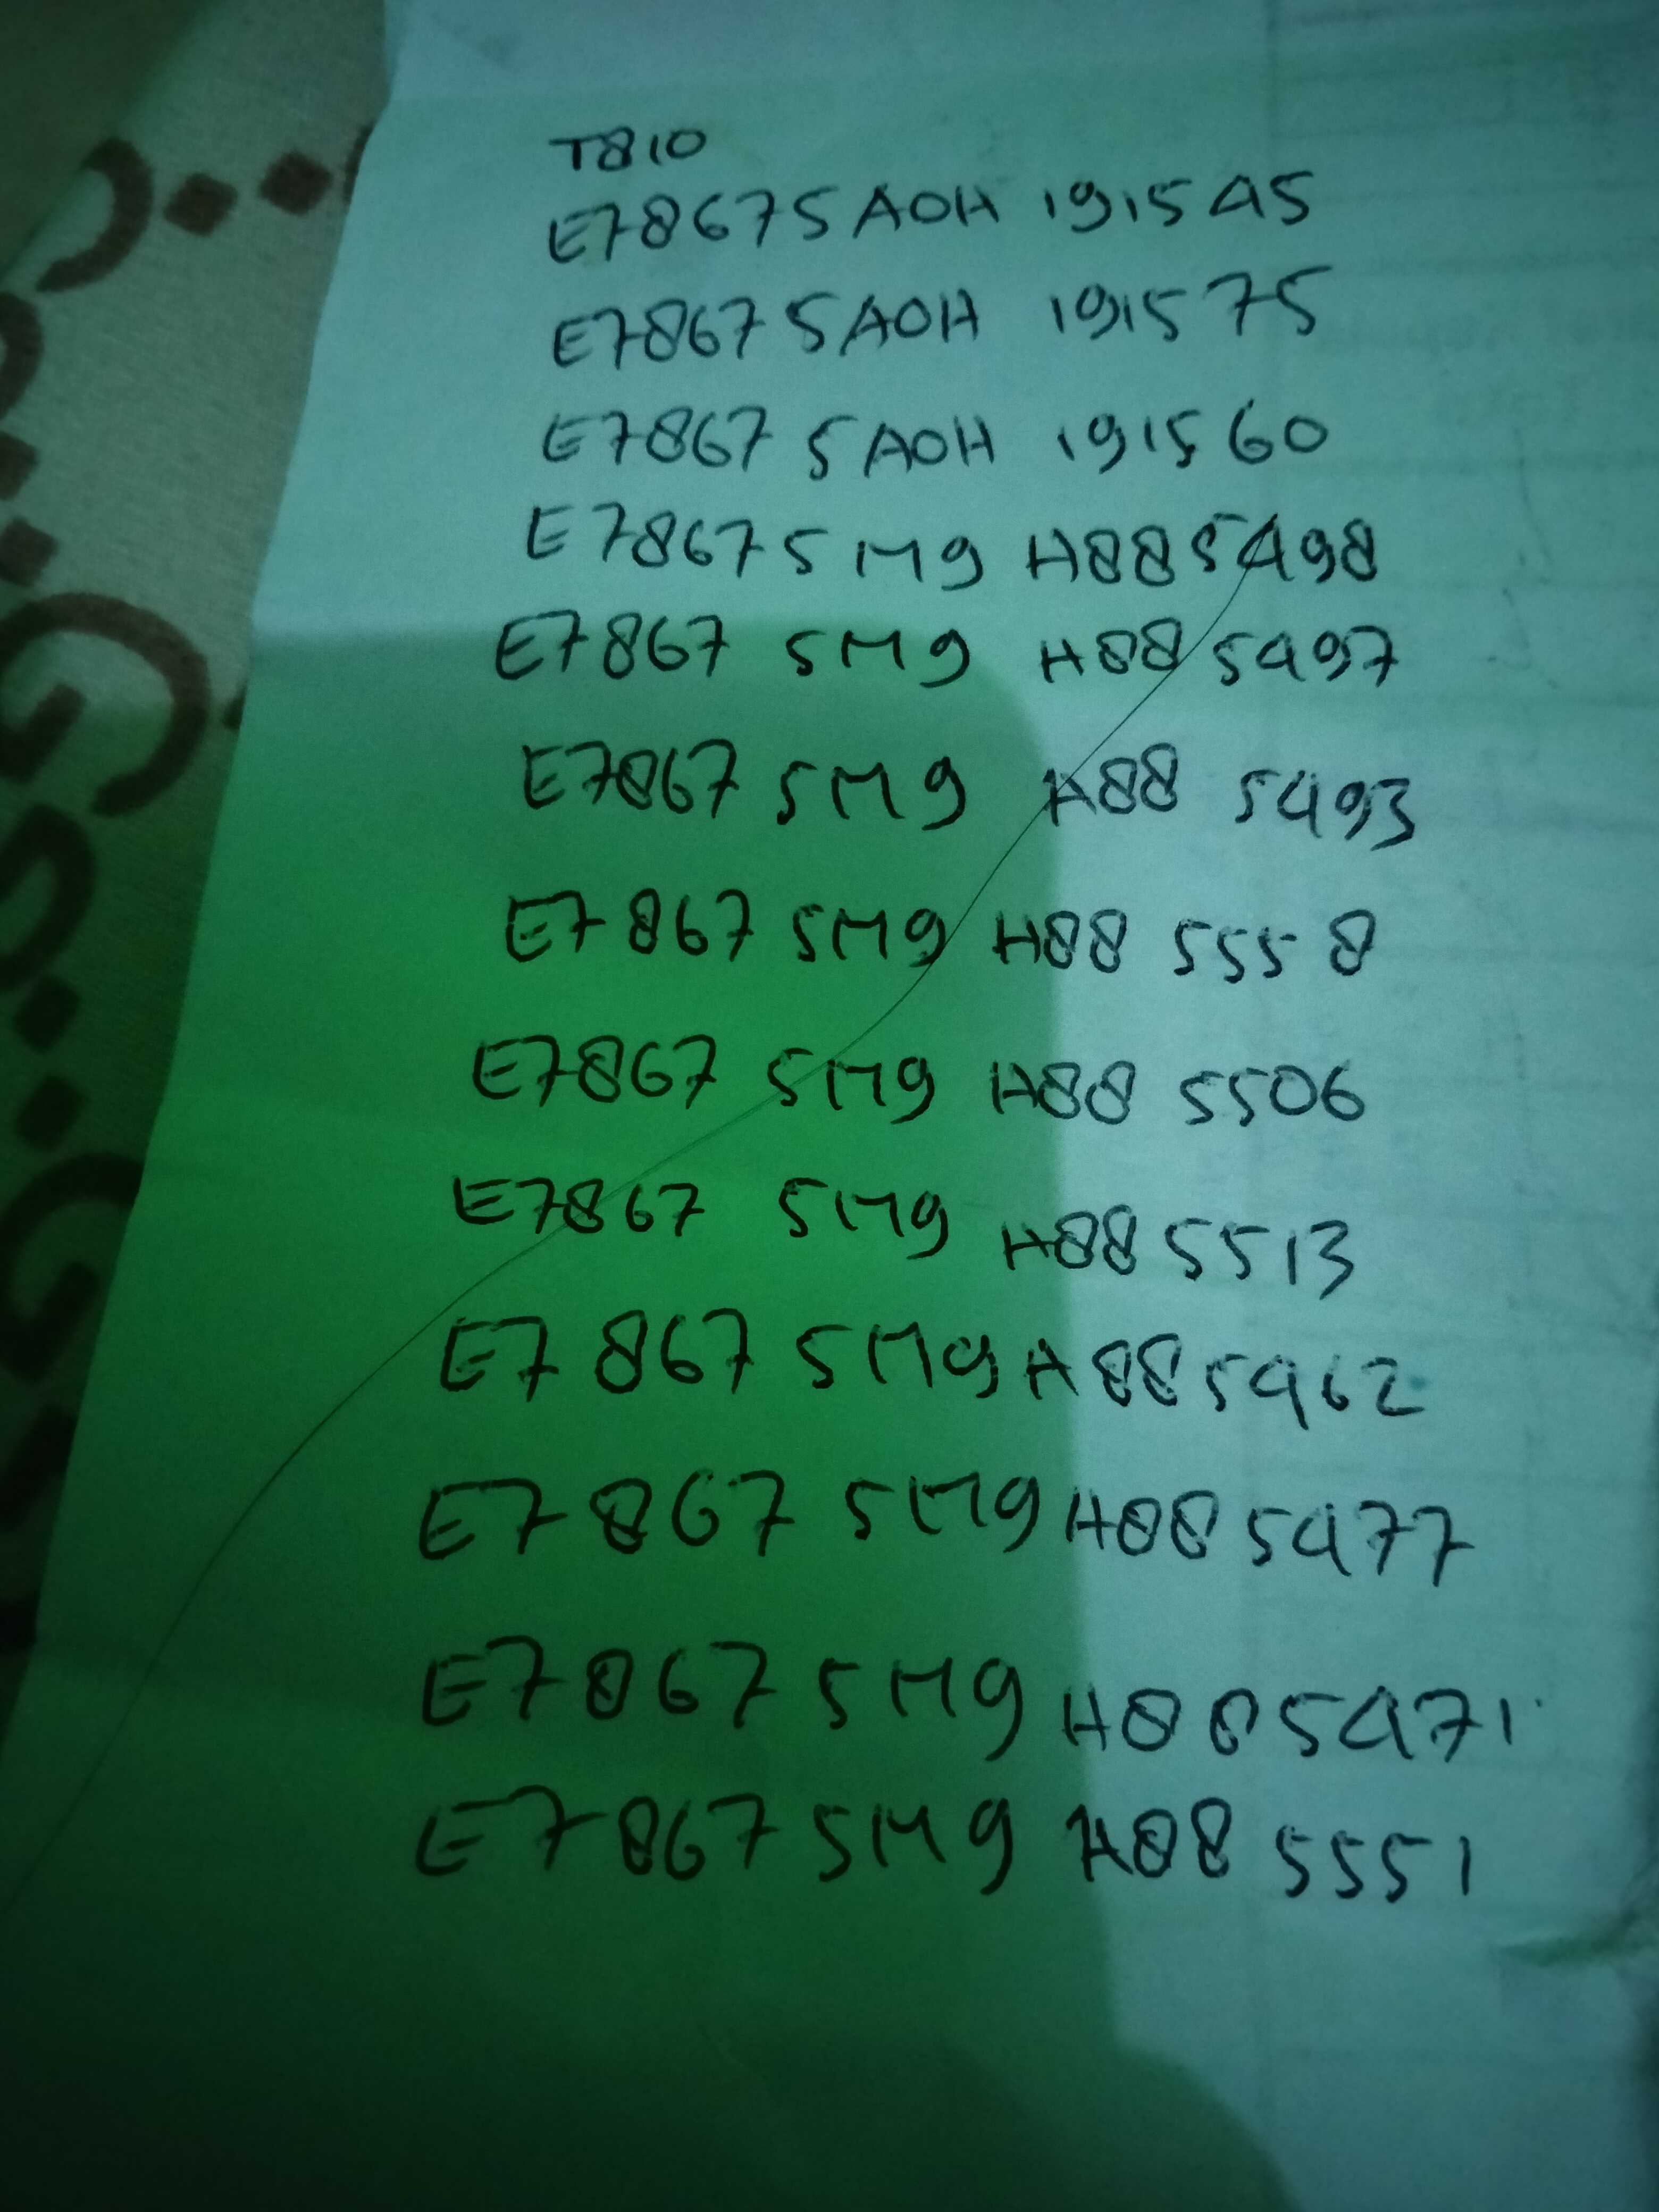 T810
E78675A0H191545
E78675A0H 191575
E7867 5A0H 191560
E78675M9 H885498
E7867 5M9 H885497
E7867 5M9 H88 5493
E7867 5M9 H88 5558
E7867 5M9 H88 5506
E7867 5M9 H88 5513
E7867 5M9H885462
E7867 5M9H885477
E78675M9 H885471
E78675M9 H88 5551